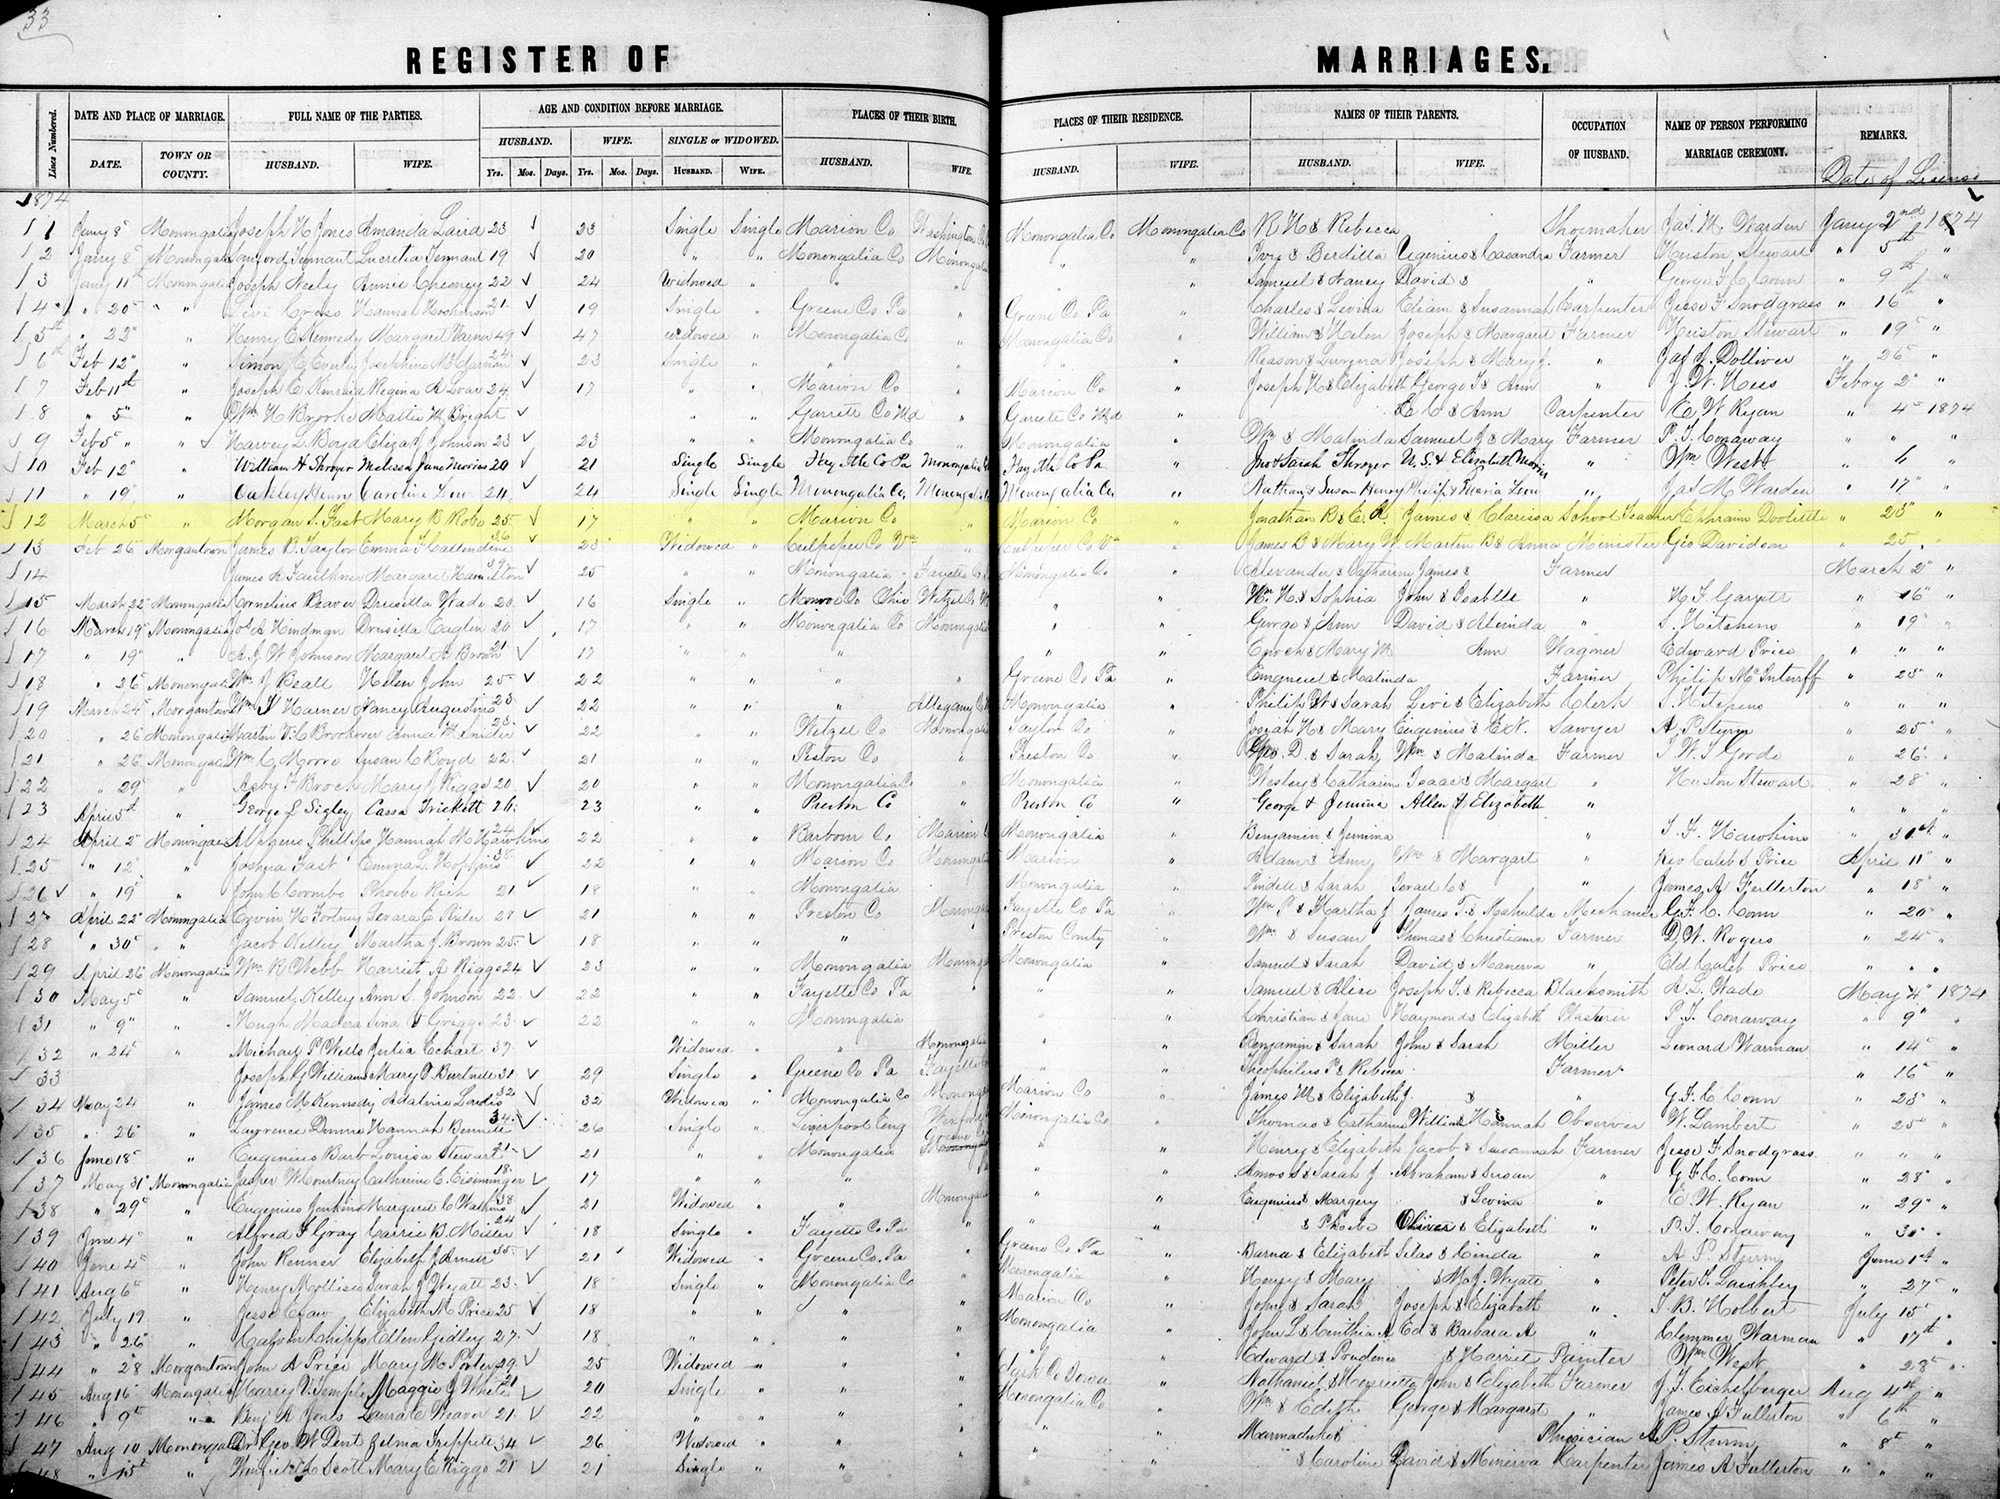 33
REGISTER OF MARRIAGES.
Lines Numbered. DATE AND PLACE OF MARRIAGE. FULL NAME OF THE PARTIES. AGE AND CONDITION BEFORE MARRIAGE. PLACES OF THEIR BIRTH. PLACES OF THEIR RESIDENCE. NAMES OF THEIR PARENTS. OCCUPATION OF HUSBAND. NAME OF PERSON PERFORMING MARRIAGE CEREMONY. REMARKS.
DATE. TOWN OR COUNTY. HUSBAND. WIFE. HUSBAND. WIFE. SINGLE or WIDOWED. HUSBAND. WIFE. HUSBAND. WIFE. HUSBAND. WIFE. Date of License
Yrs. Mos. Days. Yrs. Mos. Days. HUSBAND. WIFE.
1874
1 Jany 8 Monongalia Joseph N Jones Amanda Laird 23 23 Single Single Marion Co Washington Monongalia Co Monongalia Co R H & Rebecca Shoemaker Jas. M. Warden Jany 2nd 1874
2 Jany 8 Tennant Lucretia Tennant 19 20 " " Monongalia Co " " & Berdilla & Casandra Farmer Stewart " 5th "
3 Jany 11th Joseph Neely Annie Chesney 22 24 Widowed " " " Samuel & Nancy David & " George F C Conn " 9th "
4 " 20 " Levi Cross Hannah 21 19 Single " Greene Co Pa " Greene Co Pa " Charles & Levina & Susannah Carpenter Jesse F Snodgrass " 16th "
5 " 22 " Henry C Kennedy Margaret 49 47 widowed " Monongalia Co " Monongalia Co " William & Helen Joseph & Margaret Farmer Stewart " 19 "
6 Feb 12 " Simon Everly Josephine 24 23 Single " " " " Joseph & Mary J. " Jas J. Dolliver " 26 "
7 Feb 11th " Joseph E Regina A Loar 24 17 " " Marion Co " Marion Co " Joseph H & Elizabeth George & Ann " J. W. Hess Febry 2 "
8 " 5 " Wm H Brooke Mattie M Bright " " Garrett Co Md " Garrett Co Md " E C & Ann Carpenter E. W. Ryan " 4 1874
9 Feb 5 " Harvey L. Boyd Eliza J Johnson 23 23 " " Monongalia Co " Monongalia " Wm & Malinda Samuel J & Mary Farmer P. T. Conaway " " "
10 Feb 12 " William H Shroyer Melissa Jane Morris 20 21 Single Single Fayette Co Pa Monongalia Fayette Co Pa " Jno & Sarah Shroyer U. S. & Elizabeth Morris " Wm West "
11 " 19 " Henry Caroline 24 24 Single Single Monongalia Co. Monongalia Co. " Nathan & Susan Henry Philip & Maria " Jas M Warden " 17 "
12 March 5 " Morgan S. Fast Mary B Robe 25 17 " " Marion Co " Marion Co " Jonathan B & E. A. James & Clarissa School Teacher Ephraim Doolittle " 23 "
13 Feb 26 Morgantown James B. Taylor Emma F Callendine 36 23 Widowed " Culpeper Co Va " Culpeper Co Va " James B & Mary W. Martin B & Anna Minister Geo Davidson " 25 "
14 James A Faulkner Margaret Hamilton 39 25 " " Monongalia Fayette Co Monongalia Co " Alexander & Catharine James & Farmer March 2 "
15 March 22 Monongalia Cornelius Beaver Drusilla Wade 20 16 Single " Monroe Co Ohio Wetzel Co " " Wm H. & Sophia John & Isabelle " " 16 "
16 March 19 Monongalia A Hindman Drusilla 20 17 " " Monongalia Co " " George & Ann David & Alinda " J. Hitchens " 19 "
17 " 19 " A J W Johnson Margaret A Brown 21 17 " " " " " Enoch & Mary M Ann Wagner Edward Price " " "
18 " 26 Wm J Beall Helen John 25 22 " " " " Greene Co Pa " & Malinda Farmer Philip McInturff " 25 "
19 March 24 Morgantown Wm Harner Nancy Augustine 23 22 " " " Allegany Monongalia " Philip W & Sarah Levi & Elizabeth Clerk J Hitchens " " "
20 " 26 Martin V. C Brookover Anna M Snider 23 22 " " Wetzel Co Taylor Co " Josiah H & Mary Eugenius & E. N. Sawyer A. P Sturm " 25 "
21 " 26 Wm C Moore Susan C Boyd 22 21 " " Preston Co " Preston Co " D. & Sarah Wm & Malinda Farmer " 26 "
22 " 29 " Asby F Brock Mary J Riggs 20 20 " " Monongalia Co " Monongalia " Wesley & Catharine Isaac & Margaret " Stewart " 28 "
23 April 5th " George S Sigley Cassa Trickett 26 23 " " Preston Co " Preston Co " George & Jemima Allen & Elizabeth " " " "
24 April 2 Alpheus Phillips Hannah M Hawkins 24 22 " " Barbour Co Marion Monongalia " Benjamin & Jemima " T. F. Hawkins " 31st "
25 " 12 " Joshua Fast Emma L. Hopkins 38 22 " " Marion Co Marion " Adam & Amy Wm & Margart " Rev Caleb S Price April 11 "
26 " 19 " John C Coombs Phoebe Rich 21 18 " " Monongalia Monongalia " Pindell & Sarah Israel C & " James A Fullerton " 18 "
27 April 22 Monongalia N Fortney 28 21 " " Preston Co Fayette Co Pa " Wm P & Martha J James T. & Mahulda Mechanic G. F. C. Conn " 20 "
28 " 30 " Jacob Kelley Martha J. Brown 25 18 " " " Preston County " Wm & Susan Thomas & Christiana Farmer D. W. Rogers " 24 "
29 April 26 Monongalia Wm R Webb Harriet A Riggs 24 23 " " Monongalia Monongalia " Samuel & Sarah David & Manerva " Eld Caleb Price " " "
30 May 5 " Samuel Kelley Ann S. Johnson 22 22 " " Fayette Co Pa " " Samuel & Alice Joseph T. & Rebecca Blacksmith A L. Wade May 4 1874
31 " 9 " Hugh Madera 23 22 " " Monongalia " " Christian & Jane & Elizabeth Plasterer P. T. Conaway " 9 "
32 " 24 " Michael P Wells Julia Echart 37 Widowed " " Monongalia " " Benjamin & Sarah John & Sarah Miller Leonard Warman " 14 "
33 Joseph G Williams Mary 31 29 Single " Greene Co Pa Fayette " Theophilus P & Farmer " 16 "
34 May 24 " James M Kennedy Adaline 32 32 Widowed " Monongalia Co Marion Co " James M & Elizabeth J. & " G. F. C. Conn " 23 "
35 " 26 " Lawrence Hannah Bennett 34 26 Single " Liverpool Eng Monongalia Co " Thomas & Catharine William & Hannah Observer W. Lambert " 25 "
36 June 18 " Eugenius Barb Louisa Stewart 21 21 " " Monongalia Greene " Henry & Elizabeth Jacob & Susannah Farmer Jesse F Snodgrass " " "
37 May 31 Monongalia Jasper W Courtney Catherine E. Eisminger 18 17 " " " " " Amos S & Sarah J. Abraham & Susan " G F. C. Conn " 28 "
38 " 29 " Eugenius Jenkins Margaret C Watkins 38 21 Widowed " " Monongalia " " Eugenius & Margery & Levina " E. W. Ryan " 29 "
39 June 4 " Alfred F Gray Carrie B. Miller 24 18 Single " Fayette Co Pa " " " & Phoebe Oliver & Elizabeth " P. T. Conaway " 30 "
40 June 4 " John Renner Elizabeth J 35 21 Widowed " Greene Co. Pa " Greene Co Pa " Barna & Elizabeth Silas & Cinda " A P Sturm June 1st "
41 Aug 6 " Henry Mollisee Sarah J Wyatt 23 18 Single " Monongalia Co " Monongalia " Henry & Mary & M. J. Wyatt " Peter T. Laishley " 27 "
42 July 19 " Jesse Elizabeth M Price 25 18 " " " " Marion Co " John & Sarah Joseph & Elizabeth " T. B. Holbert July 15 "
43 " 26 " Calvin Chipps Ellen Gidley 27 18 " " " " Monongalia " John L & Cinthia A Ed & Barbara A " Clemmer Warman " 17th "
44 " 28 Morgantown John A Price Mary M Porter 29 25 Widowed " " " " Edward & Prudence & Harriet Painter Wm West " 28 "
45 Aug 16 Monongalia Harry V. Temple Maggie J White 21 20 Single " " " Clark Co Iowa " Nathaniel & Henrietta John & Elizabeth Farmer J. J. Eichelberger Aug 4th "
46 " 9 " Benj A Jones Laura C Weaver 21 22 " " " " Monongalia Co " Wm & Edith George & Margaret " James A Fullerton " 6th "
47 Aug 10 Dr Geo W Dent Zelma Trippett 34 26 Widowed " " " " Marmaduke & Physician A P. Sturm " 8 "
48 " 15 " Winfield Scott Mary E Riggs 21 21 Single " " " " " & Caroline David & Minerva Carpenter James A Fullerton " " "